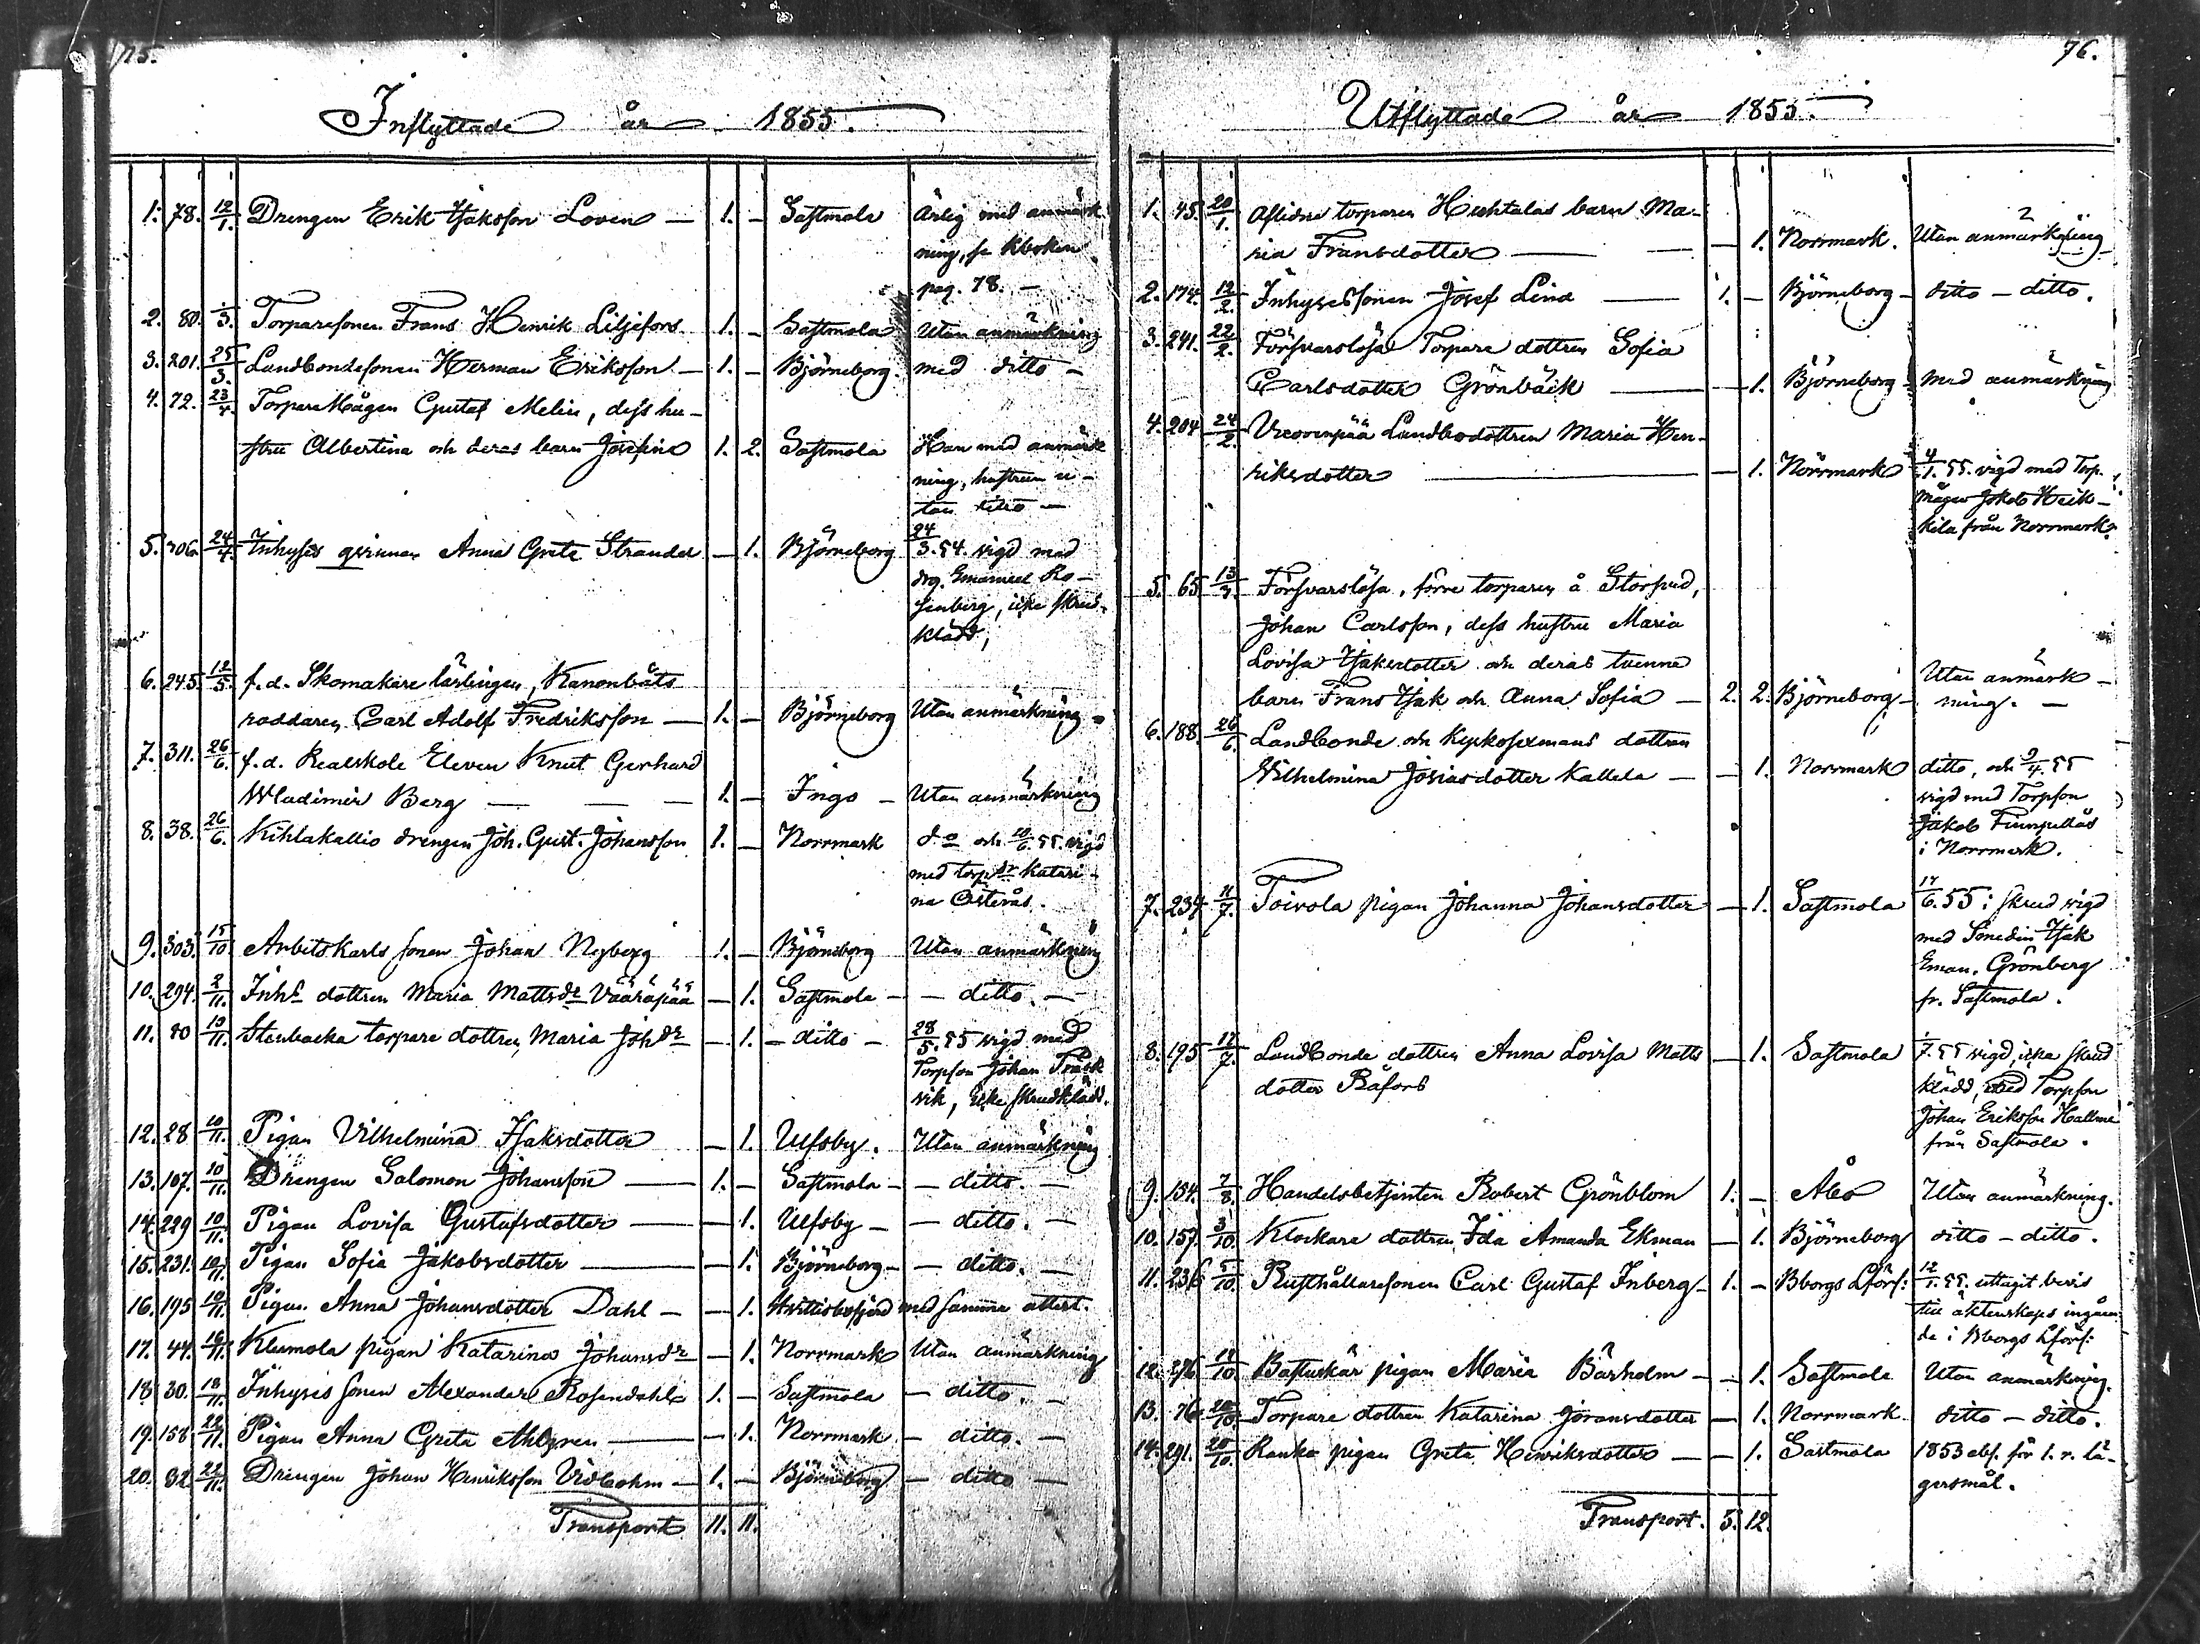 75.
Inflyttade år 1855.
1. 78. 12/1. Drengen Erik Isaksson Loven — 1. — Sastmola Ärlig med anmärk
ning, se Kboken
pag. 78. —
2. 80. /3. Torparesonen Frans Henrik Liljefors 1. — Sastmola Utan anmärkning
3. 201. 25/3. Landbondesonen Herman Eriksson — 1. — Björneborg med ditto —
4. 72. 23/4. Torpare Mågen Gustaf Melin, dess hu-
stru Albertina och deras barn Josefina 1. 2. Sastmola Han med anmärk
ning, hustrun u-
tan ditto —
5. 306. 24/4. Inhyses qvinnan Anna Greta Strander — 1. Björneborg 24/3. 54. vigd med
drg. Emanuel Ro-
senberg, icke skrud-
klädd,
6. 245. 12/5. f. d. Skomakare lärlingen, Kanonbåts
roddaren Carl Adolf Fredriksson — 1. — Björneborg Utan anmärkning —
7. 311. 26/6. f. d. Realskole Eleven Knut Gerhard
Wladimir Berg — — — 1. — Ingo — Utan anmärkning
8. 38. 26/6. Kihlakallio drengen Joh. Gust. Johansson 1. — Norrmark do och 10/6. 55. vigd
med torpdr Katari-
na Österås.
9. 303. 15/10. Arbetskarls sonen Johan Nyberg 1. — Björneborg Utan anmärkning
10. 294. 2/11. Inhs dottren Maria Mattsdr Vääräpää — 1. Sastmola — — ditto. —
11. 80 10/11. Stenbacka torpare dottren Maria Johdr — 1. — ditto — 28/5. 55 vigd med
Torpson Johan Träsk
vik, icke skrudklädd.
12. 28 10/11. Pigan Vilhelmina Isaksdotter — 1. Ulfsby. Utan anmärkning
13. 107. 10/11. Drengen Salomon Johansson — 1. — Sastmola — — ditto. —
14. 229 10/11. Pigan Lovisa Gustafsdotter — — 1. Ulfsby — — ditto. —
15. 231. 10/11. Pigan Sofia Jakobsdotter — — 1. Björneborg — — ditto. —
16. 195 10/11. Pigan Anna Johansdotter Dahl — — 1. Hvittisbofjerd med samma attest.
17. 44. 16/11. Klemola pigan Katarina Johansdr — 1. Norrmark Utan anmärkning
18. 30. 18/11. Inhyses sonen Alexander Rosendahl 1. — Sastmola — ditto. —
19. 158 22/11. Pigan Anna Greta Ahlgren — — 1. Norrmark — ditto. —
20. 82. 22/11. Drengen Johan Henriksson Vidbohm — 1. — Björneborg — ditto —
Transport 11. 11.
76.
Utflyttade år 1855.
1. 45. 20/1. Aflidne torparen Huhtalas barn Ma-
ria Fransdotter — — — 1. Norrmark. Utan anmärkning
2. 174. 12/2. Inhysessonen Josef Lind — 1. — Björneborg — ditto — ditto.
3. 241. 22/2. Försvarslösa Torpare dottren Sofia
Carlsdotter Grönbäck — — 1. Björneborg — med anmärkning
4. 204 24/2. Landbodottren Maria Hen-
riksdotter — — 1. Norrmark 4/1. 55. vigd med Torp.
mågen Jakob Heik-
kila från Norrmark.
5. 65 13/3. Försvarslösa, förre torparen å Storsud,
Johan Carlsson, dess hustru Maria
Lovisa Isaksdotter och deras tvenne
barn Frans Isak och Anna Sofia — 2. 2. Björneborg — Utan anmärk-
ning. —
6. 188. 26/6. Landbonde och Kyrkosexmans dottren
Wilhelmina Josiasdotter Kallela — — 1. Norrmark ditto, och 9/4. 55
vigd med Torpson
Jakob Finnpellas
i Norrmark.
7. 234 11/7. Toivola pigan Johanna Johansdotter — 1. Sastmola 17/6. 55 i skrud vigd
med Smeden Isak
Eman. Grönberg
fr. Sastmola.
8. 195 12/7. Landbonde dottren Anna Lovisa Matts — 1. Sastmola /7. 55 vigd, icke skrud
dotter Råfors klädd, med Torpson
Johan Eriksson Hallma
från Sastmola.
9. 154. 7/8. Handelsbetjenten Robert Grönblom 1. — Åbo Utan anmärkning.
10. 157. 3/10. Klockare dottren Ida Amanda Ekman — 1. Björneborg ditto — ditto.
11. 236 5/10. Rusthållaresonen Carl Gustaf Inberg — 1. — Bborgs Lförs: 12/1. 55. uttagit bevis
till äktenskaps ingåen
de i Bborgs Lförs:
12. 276. 14/10 Bastuskär pigan Maria Bärholm — — 1. Sastmola Utan anmärkning.
13. 76 20/10. Torpare dottren Katarina Göransdotter — 1. Norrmark. ditto — ditto.
14. 291. 20/10. Ranko pigan Greta Henriksdotter — — 1. Sastmola 1853 abs. för 1. r. lä-
gersmål.
Transport. 5. 12.